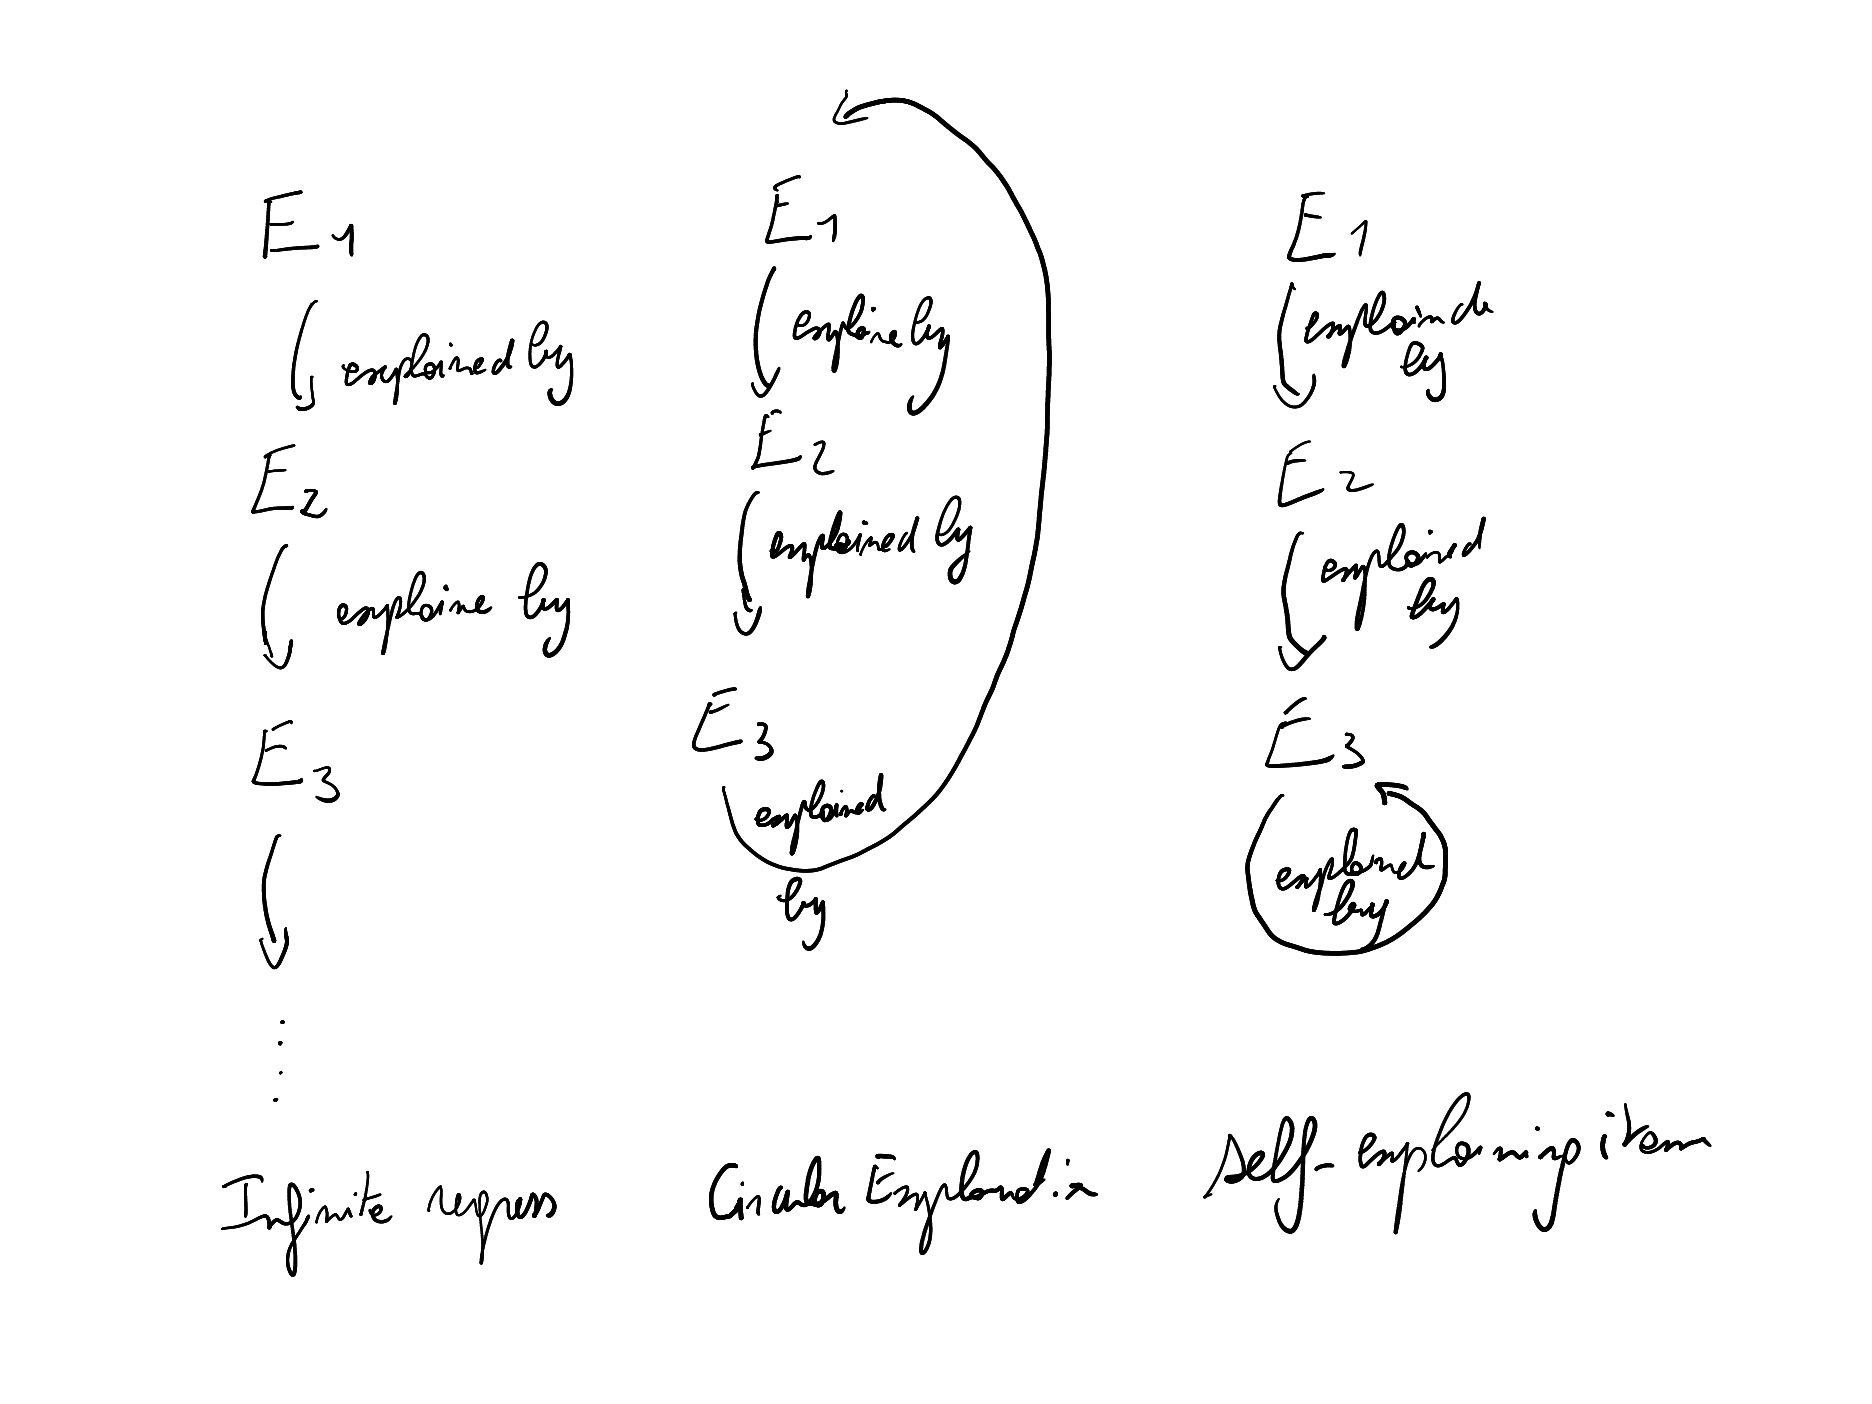 E1
explained by
E2
explaine by
E3
Infinite regress
E1
explaine by
E2
explained by
E3
explained
by
Circular Explanation
E1
explained
by
E2
explained
by
E3
explained
by
self-explaining item